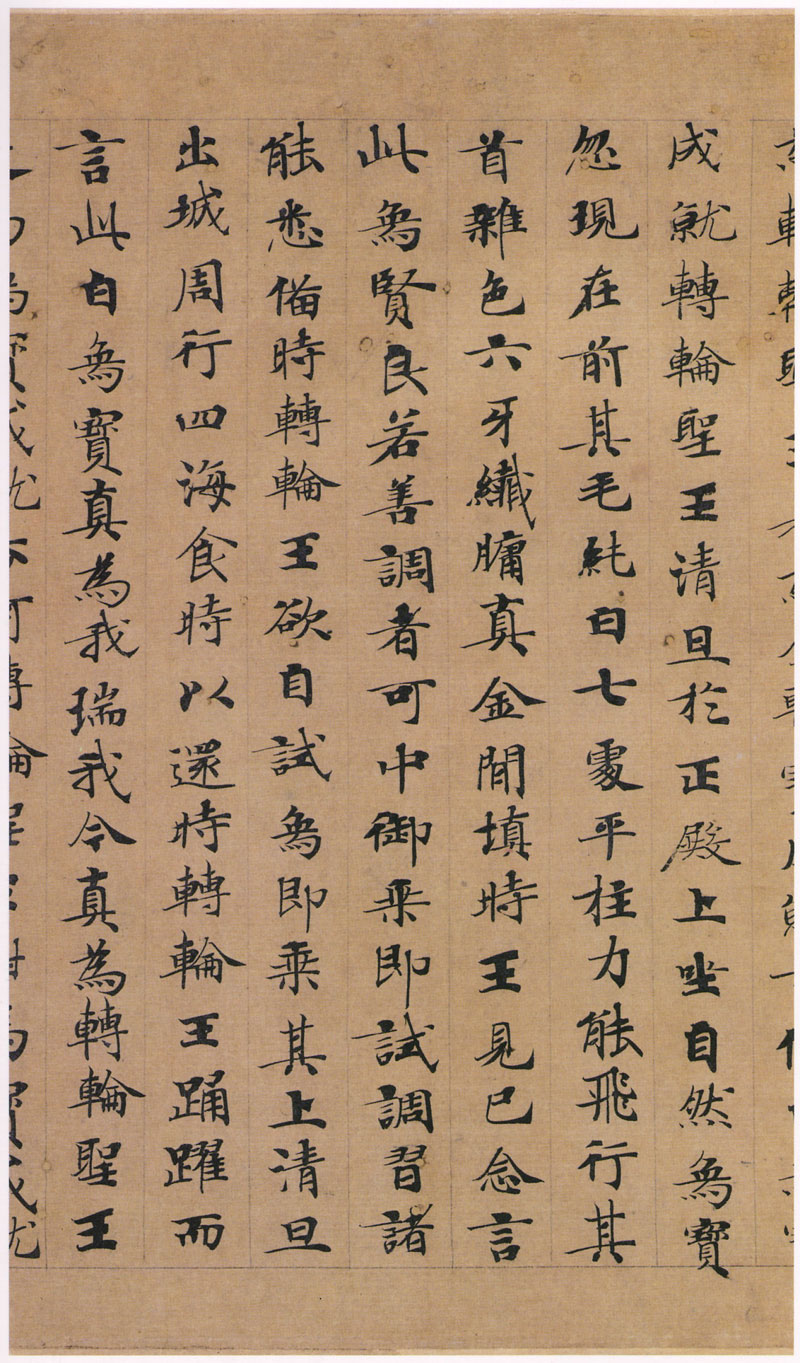 成就轉輪聖王清旦於正殿上坐自然象寶
忽現在前其毛純白七處平柱力能飛行其
首雜色六牙纖牗真金間填時王見已念言
此象賢良若善調者可中御乘即試調習諸
能悉俻時轉輪王欲自試象即乘其上清旦
出城周行四海食時以還時轉輪王踊躍而
言此白象寶真為我瑞我今真為轉輪聖王